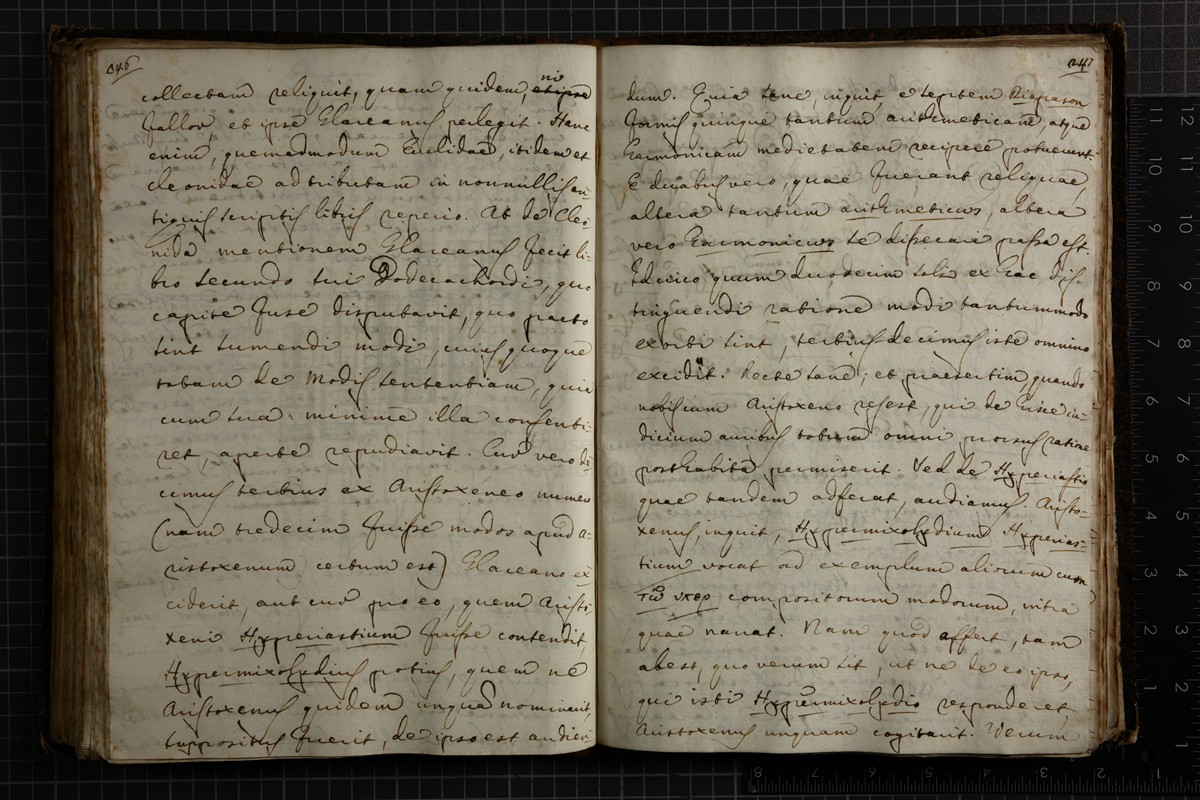 246
collectam reliquit, quam quidem, ni
fallor, et ipse Glareanus perlegit. Hanc
enim, quemadmodum Euclidae, itidem et
Cleonidae adtributam in nonnullis an-
tiquis scriptis libris reperio. At de Cleo-
nida mentionem Glareanus fecit li-
bro secundo sui Dodecachordi, quo
capite fuse disputavit, quo pacto
sint sumendi modi, cuius quoque
totam de Modis sententiam, quia
cum sua minime illa consenti-
ret, aperte repudiavit. Cur vero de-
cimus tertius ex Aristoxeneo numero
(nam tredecim fuisse modos apud A-
ristoxenum certum est) Glareano ex-
ciderit, aut cur pro eo, quem Aristo
xeni Hyperiastium fuisse contendit,
Hypermixolydius potius, quem ne
Aristoxenus quidem unquam nominavit,
suppositus fuerit, de ipso est audien-
247
dum. Quia sane, inquit, e septem Diapason
formis quinque tantum arithmeticam, atque
harmonicam medietatem recipere potuerunt.
E duabus vero, quae fuerant reliquae,
altera tantum arithmeticωs, altera
vero harmonicωs se dissecari passa est.
Idcirco quum duodecim soli ex hac dis-
tinguendi ratione modi tantummodo
exorti sint, tertius decimus iste omnino
excidit. Recte sane; et praesertim quando
nobiscum Aristoxeno res est, qui de hisce iu-
dicium auribus totum omni prorsus ratione
posthabita permiserit. Sed de Hyperiastio
quae tandem adferat, audiamus. Aristo-
xenus, inquit, Hypermixolydium Hyperias-
tium vocat ad exemplum aliorum cum
τῷ υπερ compositorum modorum, intra
quae nanat. Nam quod affert, tam
abest, quo verum sit, ut ne de eo ipso,
qui isti Hypermixolydio responderet,
Aristoxenus unquam cogitarit. Verum